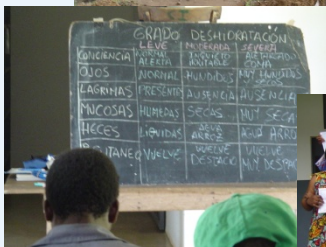 GRADO DESHIDRATACIÓN
LEVE MODERADA SEVERA
CONCIENCIA NORMAL ALERTA INQUIETO IRRITABLE COMA
OJOS NORMAL HUNDIDOS MUY HUNDIDOS
LAGRIMAS PRESENTES AUSENCIA AUSENCIA
MUCOSAS HUMEDAS SECAS MUY SECA
HECES LIQUIDAS AGUA ARROZ AGUA ARRO
VUELVE VUELVE DESPACIO VUELVE MUY DESPAC